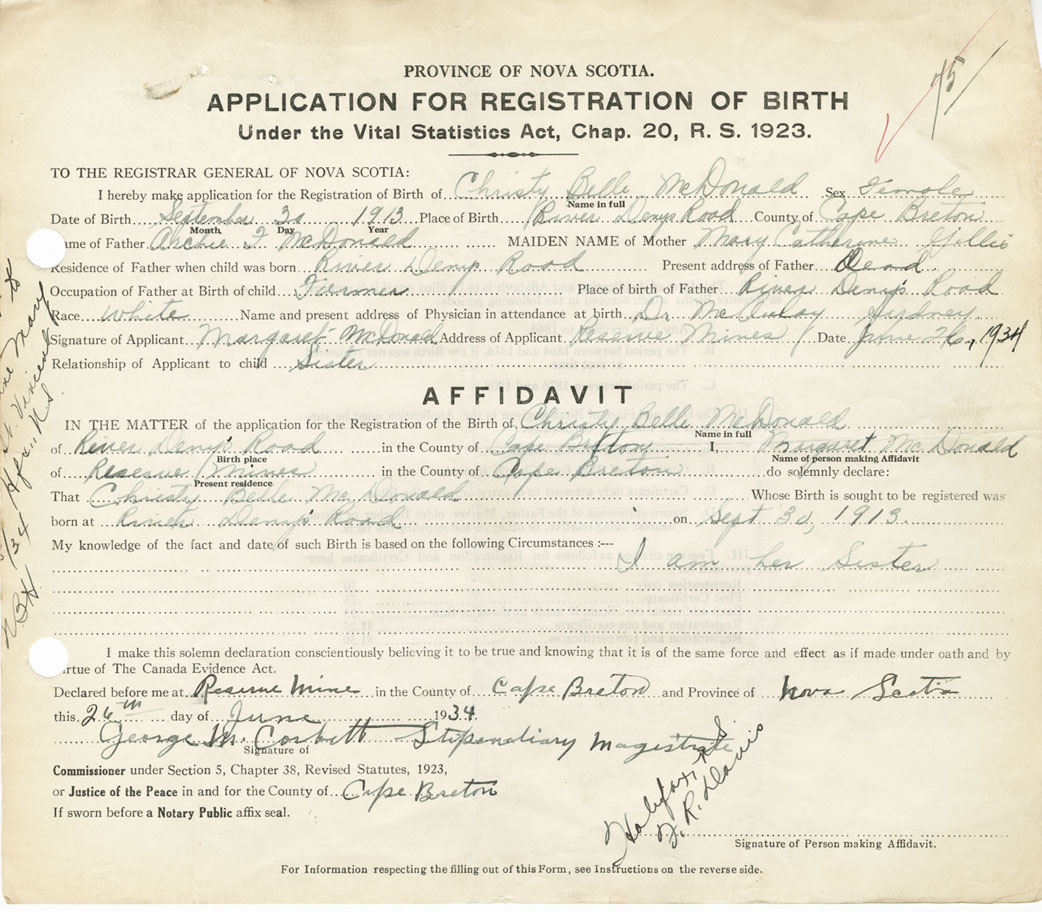 75
PROVINCE OF NOVA SCOTIA.
APPLICATION FOR REGISTRATION OF BIRTH
Under the Vital Statistics Act, Chap. 20, R. S. 1923.
TO THE REGISTRAR GENERAL OF NOVA SCOTIA:
I hereby make application for the Registration of Birth of Christy Belle McDonald Sex Female
Name in full
Date of Birth September 30 1913 Place of Birth River Denys Road County of Cape Breton
Month Day Year
ame of Father Archie F McDonald MAIDEN NAME of Mother Mary Catherine Gillis
Residence of Father when child was born River Denys Road Present address of Father Dead.
Occupation of Father at Birth of child Farmer Place of birth of Father River Denys Road
Race White Name and present address of Physician in attendance at birth Dr McAulay Sydney
Signature of Applicant Margaret McDonald Address of Applicant Reserve Mines Date June 26, 1934
Relationship of Applicant to child Sister
AFFIDAVIT
IN THE MATTER of the application for the Registration of the Birth of Christy Belle McDonald
Name in full
of River Denys Road in the County of Cape Breton I, Margaret McDonald
Birth place Name of person making Affidavit
of Reserve Mines in the County of Cape Breton do solemnly declare:
Present residence
That Christy Belle McDonald Whose Birth is sought to be registered was
born at River Denys Road on Sept 30, 1913.
My knowledge of the fact and date of such Birth is based on the following Circumstances :---
I am her Sister
I make this solemn declaration conscientiously believing it to be true and knowing that it is of the same force and effect as if made under oath and by
irtue of The Canada Evidence Act.
Declared before me at Reserve Mine in the County of Cape Breton and Province of Nova Scotia
this 26th day of June 1934.
George M. Corbett Stipendiary Magistrate
Signature of
Commissioner under Section 5, Chapter 38, Revised Statutes, 1923,
or Justice of the Peace in and for the County of Cape Breton
If sworn before a Notary Public affix seal.
Halifax N S
R. Davis
Signature of Person making Affidavit.
For Information respecting the filling out of this Form, see Instructions on the reverse side.
Mary
Vincent
Hfx., N.S.